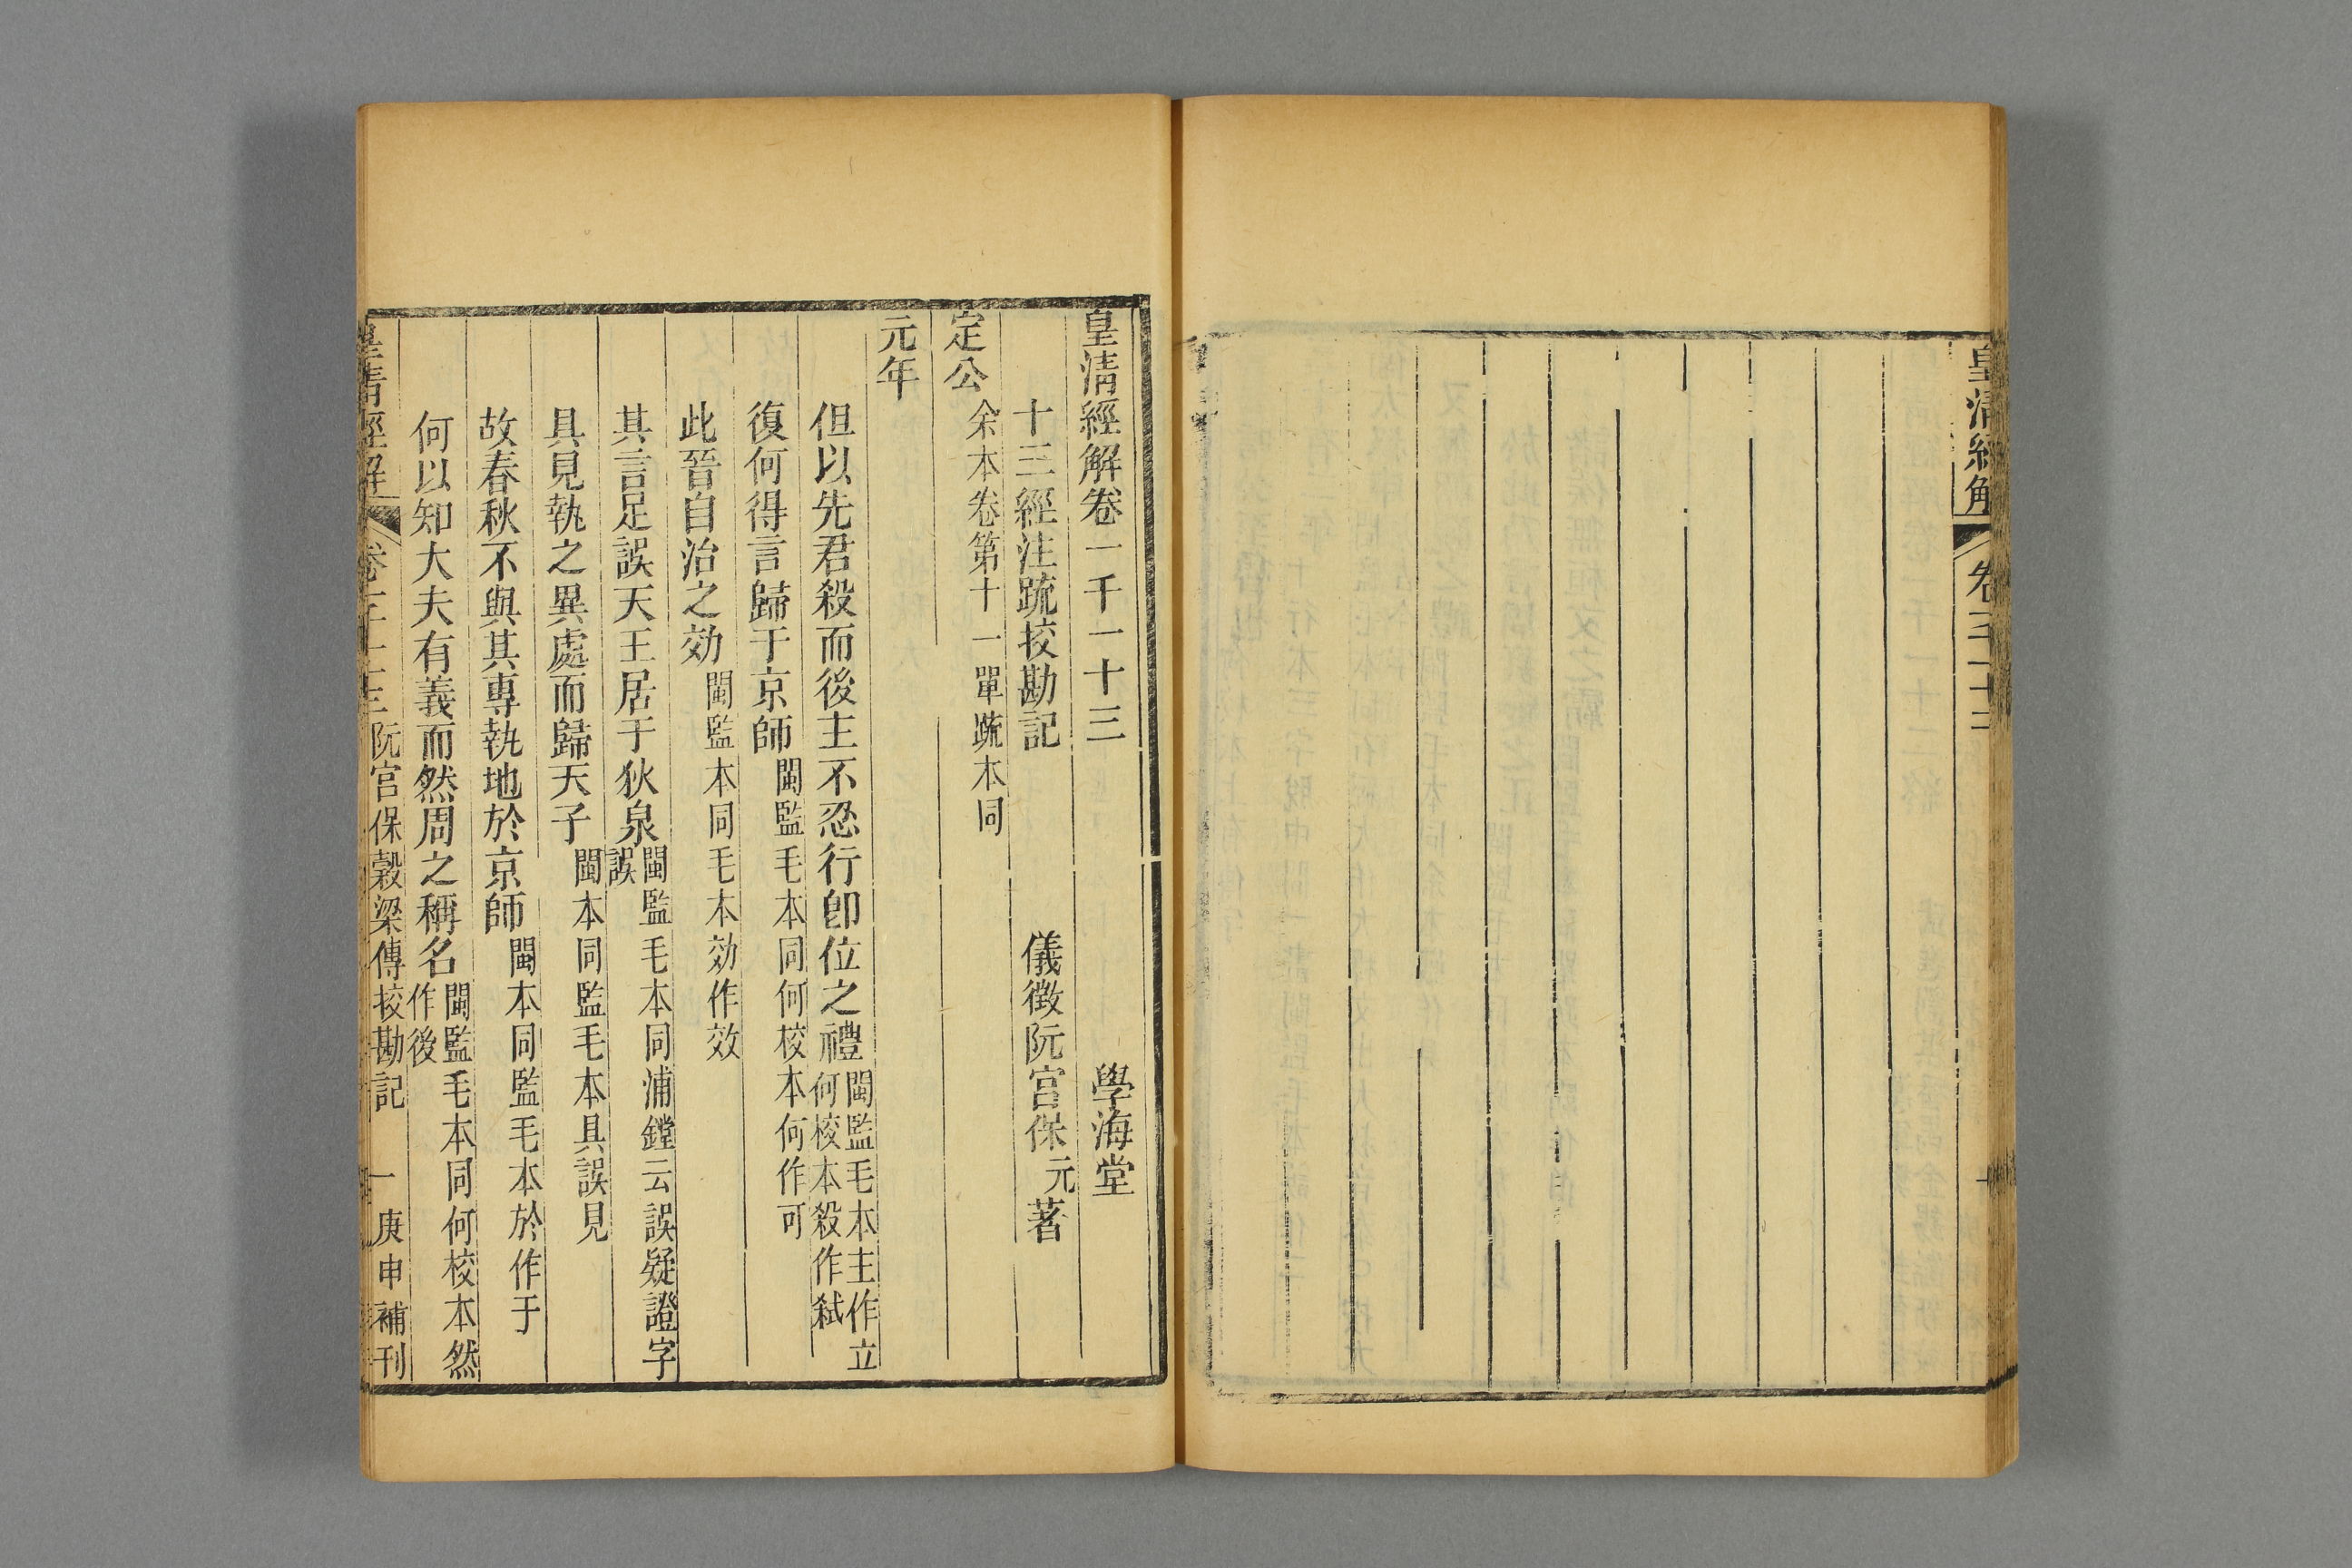 皇清經解
皇清經解卷一千一十三
學海堂
十三經注疏挍勘記
儀徵阮宮保元著
定公
余本卷第十一單疏本同
元年
但以先君殺而後主不忍行卽位之禮
閩監毛本主作立
何校本殺作弒
復何得言歸于京師
閩監毛本同何校本何作可
此晉自治之効
閩監本同毛本効作效
其言足誤天王居于狄泉
閩監毛本同浦鏜云誤疑證字
誤
具見執之異處而歸天子
閩本同監毛本具誤見
故春秋不與其專執地於京師
閩本同監毛本於作于
何以知大夫有義而然周之稱名
閩監毛本同何校本然
作後
皇清經解
阮宮保穀梁傳挍勘記
一
庚申補刊